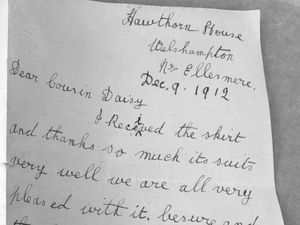 Hawthorn House
Welshampton
Nr Ellesmere.
Dec. 9. 1912
Dear Cousin Daisy
I Received the skirt
and thanks so much its suits
very well we are all very
pleased with it. besure and